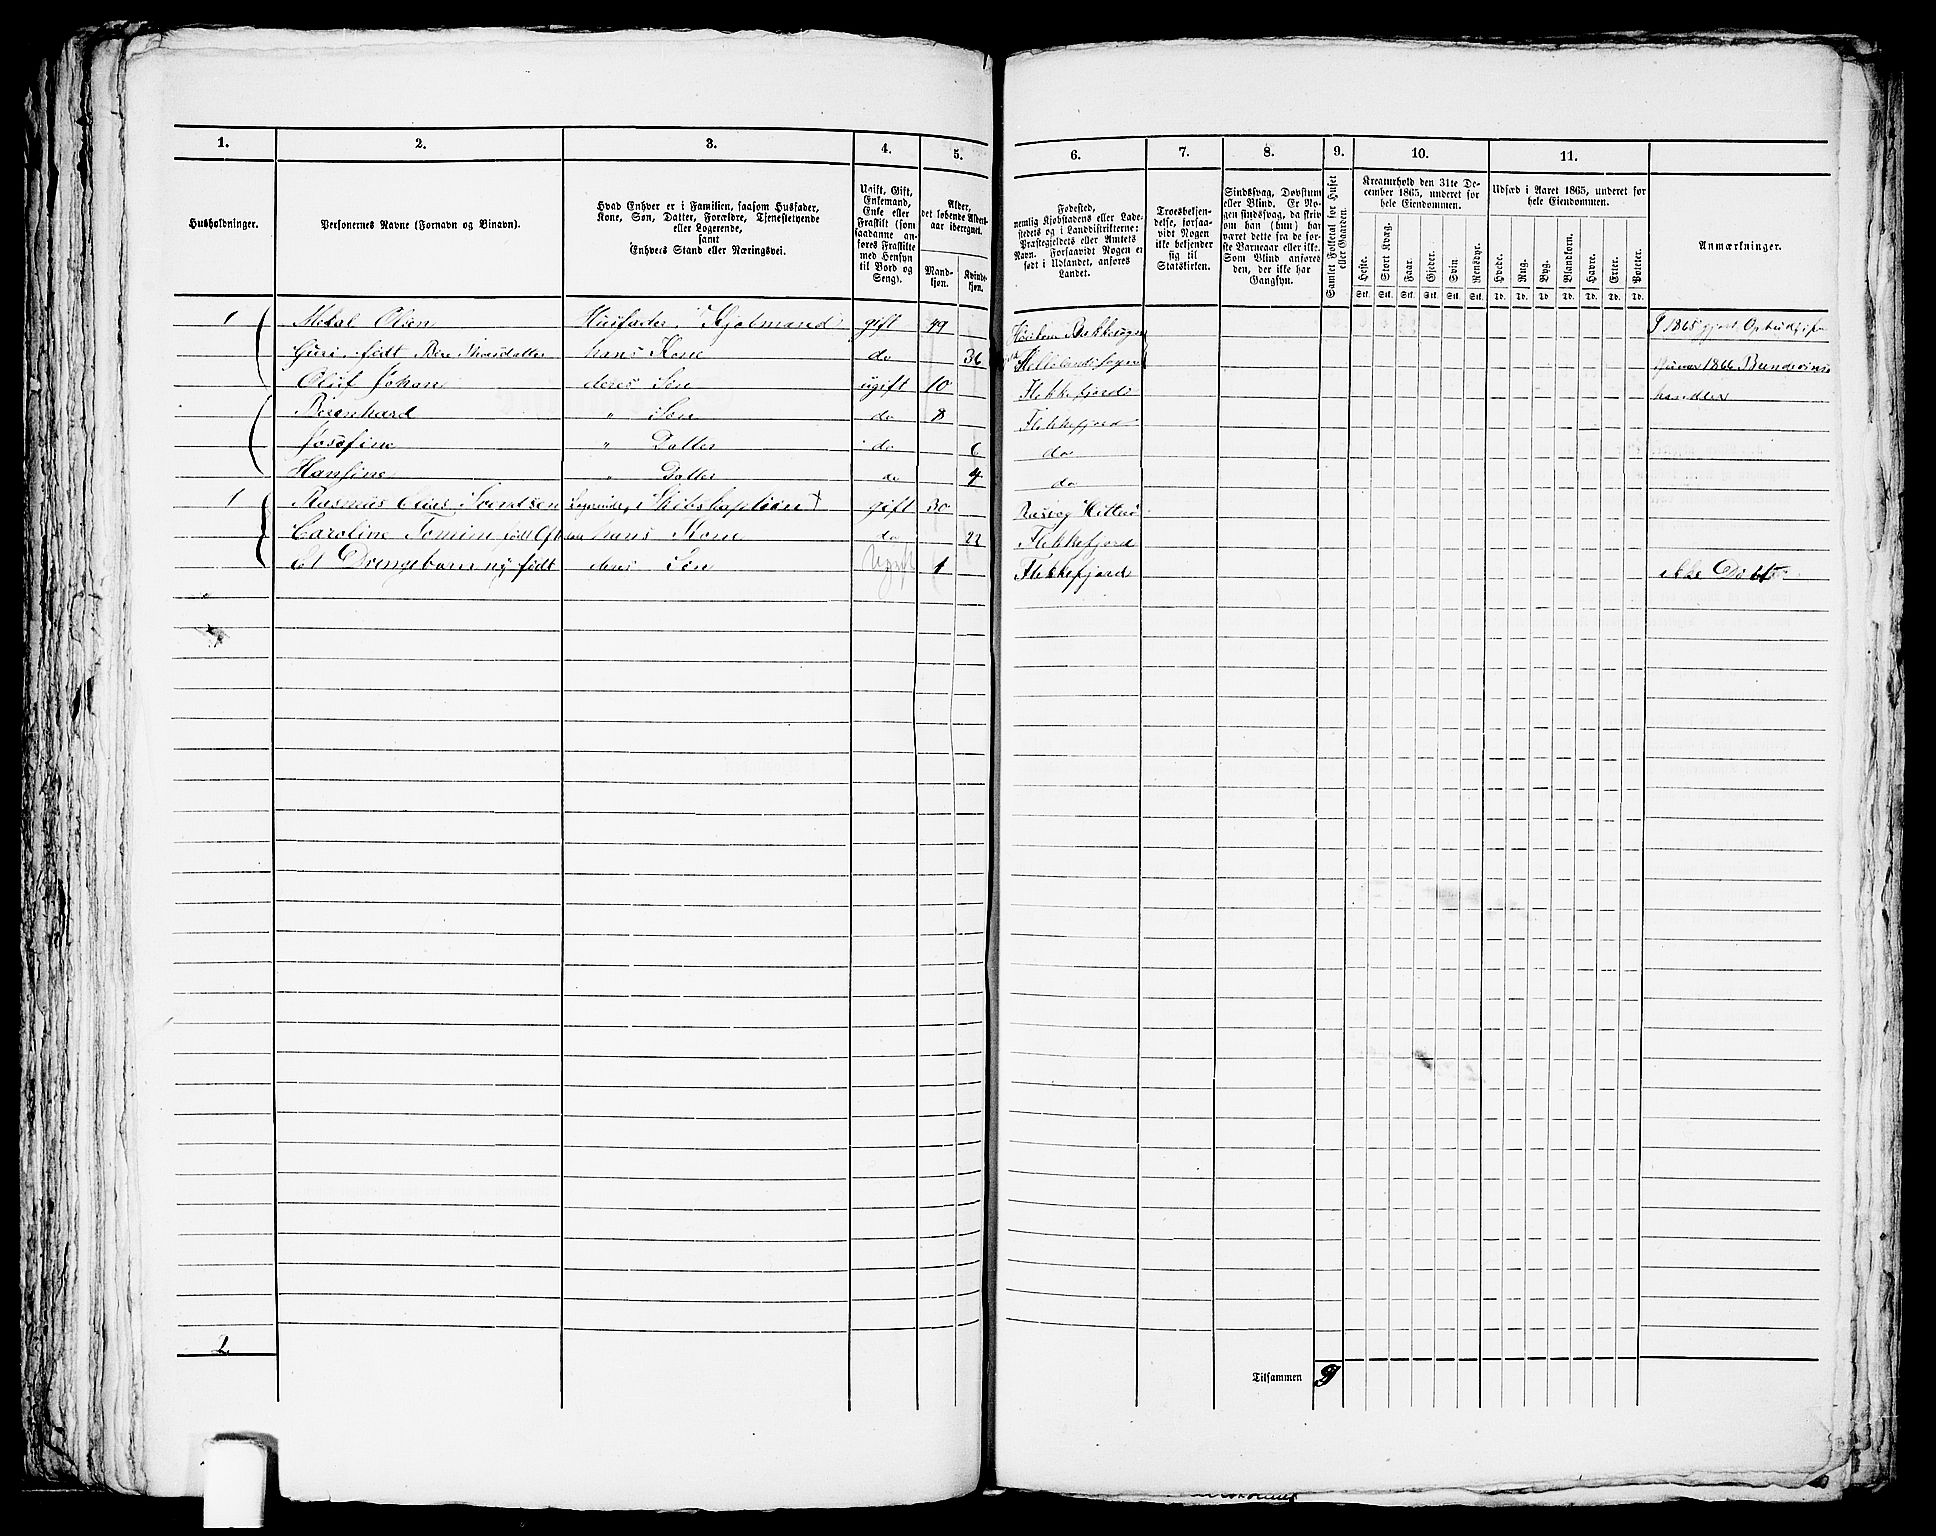 1. 2. 3. 4. 5. 6. 7. 8. 9. 10. 11.
Husholdninger.
Personernes Navne (Fornavn og Binavn).
Hvad Enhver er i Familien, saasom Husfader,
Kone, Søn, Datter, Forældre, Tjenestetyende
eller Logerende,
samt
Enhvers Stand eller Næringsvei.
Ugift, Gift,
Enkemand,
Enke eller
Fraskilt (som
saadanne an-
føres Fraskilte
med Hensyn
til Bord og
Seng).
Alder,
det løbende Alders-
aar iberegnet.
Mand-
kjøn.
Kvinde-
kjøn.
Fødested,
nemlig Kjøbstadens eller Lade-
stedets og i Landdistrikterne:
Præstegjeldets eller Amtets
Navn. Forsaavidt Nogen er
født i Udlandet, anføres
Landet.
Troesbekjen-
delse, forsaa-
vidt Nogen
ikke bekjender
sig til
Statskirken.
Sindssvag, Døvstum
eller Blind. Er No-
gen sindssvag, da skriv
om han (hun) har
været dette fra de før-
ste Barneaar eller ikke.
Som Blind anføres
den, der ikke har
Gangsyn.
Samlet Folketal for Huset
eller Gaarden.
Kreaturhold den 31te De-
cember 1865, underet for
hele Eiendommen.
Heste. Stort Kvæg. Faar. Gjeder. Svin Rensdyr.
Stk. Stk. Stk. Stk. Stk. Stk.
Udsæd i Aaret 1865, underet for
hele Eiendommen.
Hvede. Rug. Byg. Blandkorn. Havre. Erter. Poteter.
Td. Td. Td. Td. Td. Td. Td.
Anmærkninger.
1 Olsen Husfader, gift 49 1865
Guri født hans Kone do 36 1866
Oluf Johan deres Søn ugift 10 Flekkefjord handler
Berenhard " Søn do 8 Flekkefjord
Josefine " Datter do 6 do
Hansine " Datter do 4 do
1 Rasmus Svendsen gift 30 Hitterø
Caroline født hans Kone do 22 Flekkefjord
Et Drengebarn ny født deres Søn Ugift 1 Flekkefjord ikke Døbt
2
Tilsammen 9